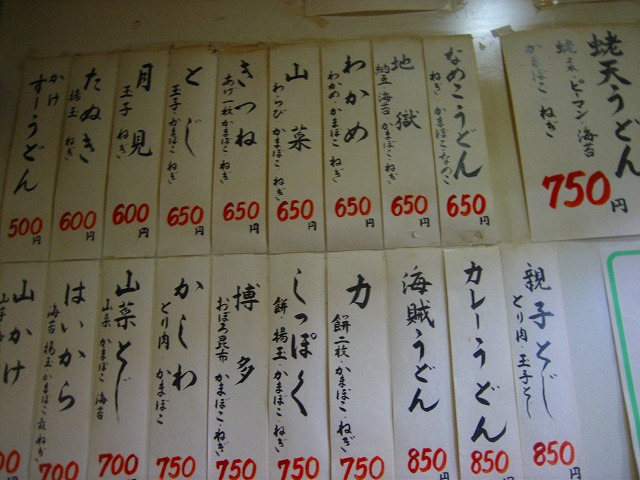 蛯天うどん
蛯天・ピーマン・海苔
かまぼこ・ねぎ
750円
なめこうどん
ねぎ・かまぼこ・なめこ
650円
地獄
納豆・海苔・かまぼこ・ねぎ
650円
わかめ
わかめ・かまぼこ・ねぎ
650円
山菜
わらび かまぼこ ねぎ
650円
きつね
あげ一枚かまぼこ ねぎ
650円
とじ
玉子 かまぼこ ねぎ
650円
月見
玉子 ねぎ
600円
たぬき
揚玉 ねぎ
600円
かけ
すーうどん
500円
親子とじ
とり肉・玉子とじ
850円
カレーうどん
850円
海賊うどん
850円
力
餅二枚・かまぼこ・ねぎ
750円
しっぽく
餅 揚玉・かまぼこ・ねぎ
750円
博多
おぼろ昆布 かまぼこ・ねぎ
750円
かしわ
とり肉 かまぼこ
750円
山菜とじ
山菜 かまぼこ 海苔
700円
はいから
海苔 揚玉・かまぼこ ねぎ
700円
山かけ
00円